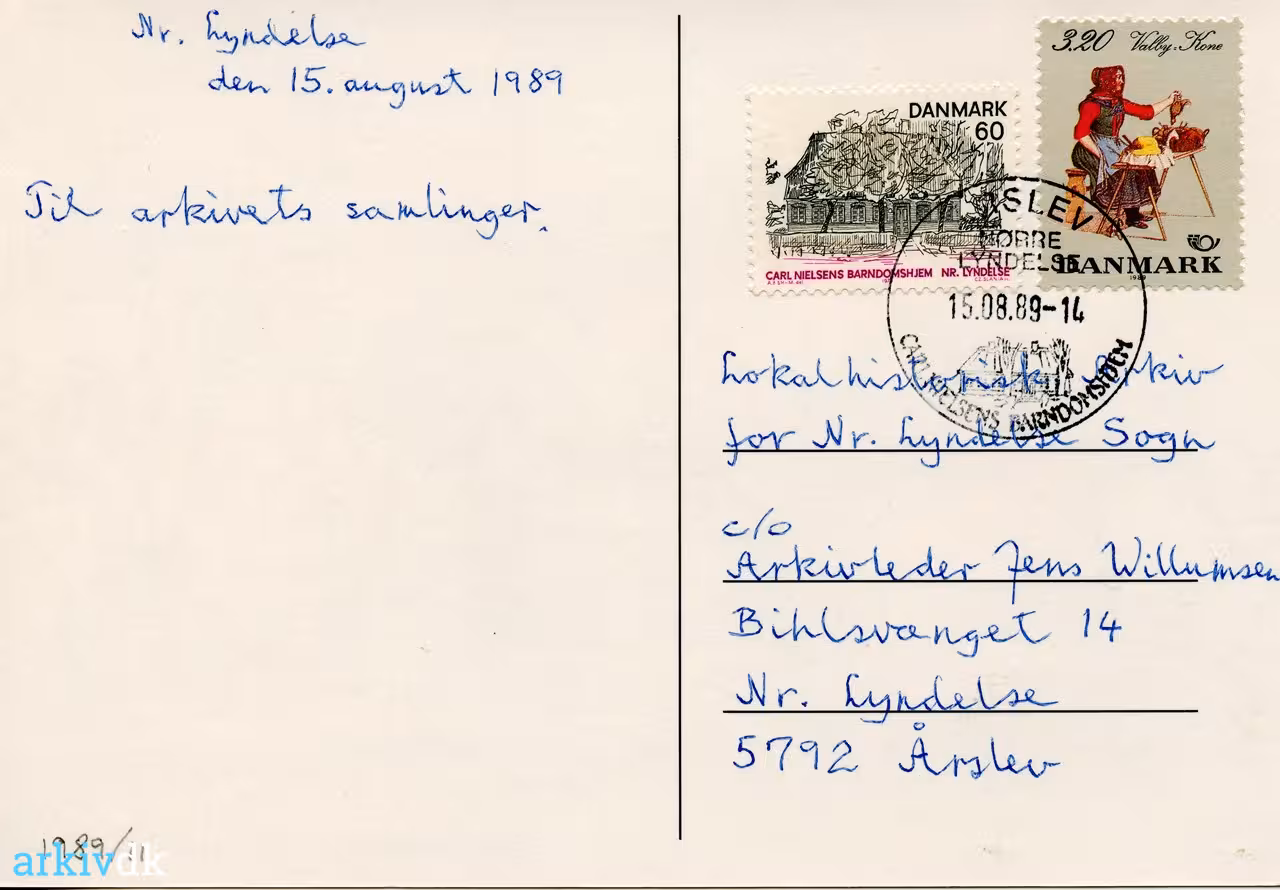 Nr. Lyndelse
den 15. august 1989
Til arkivets samlinger.
DANMARK
60
CARL NIELSENS BARNDOMSHJEM NR. LYNDELSE
3.20 Valby-Kone
DANMARK
1989
ÅRSLEV
NØRRE
LYNDELSE
15.08.89-14
CARL NIELSENS BARNDOMSHJEM
Lokalhistorisk Arkiv
for Nr. Lyndelse Sogn
c/o
Arkivleder Jens Willumsen
Bihlsvænget 14
Nr. Lyndelse
5792 Årslev
1989/11
arkivdk